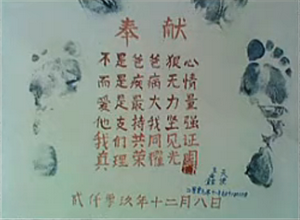 奉献
不是爸爸狠心
而是疾病无情
爱是最大力量
他支持我坚强
我们共同见证
真理荣耀光
年十二月八日